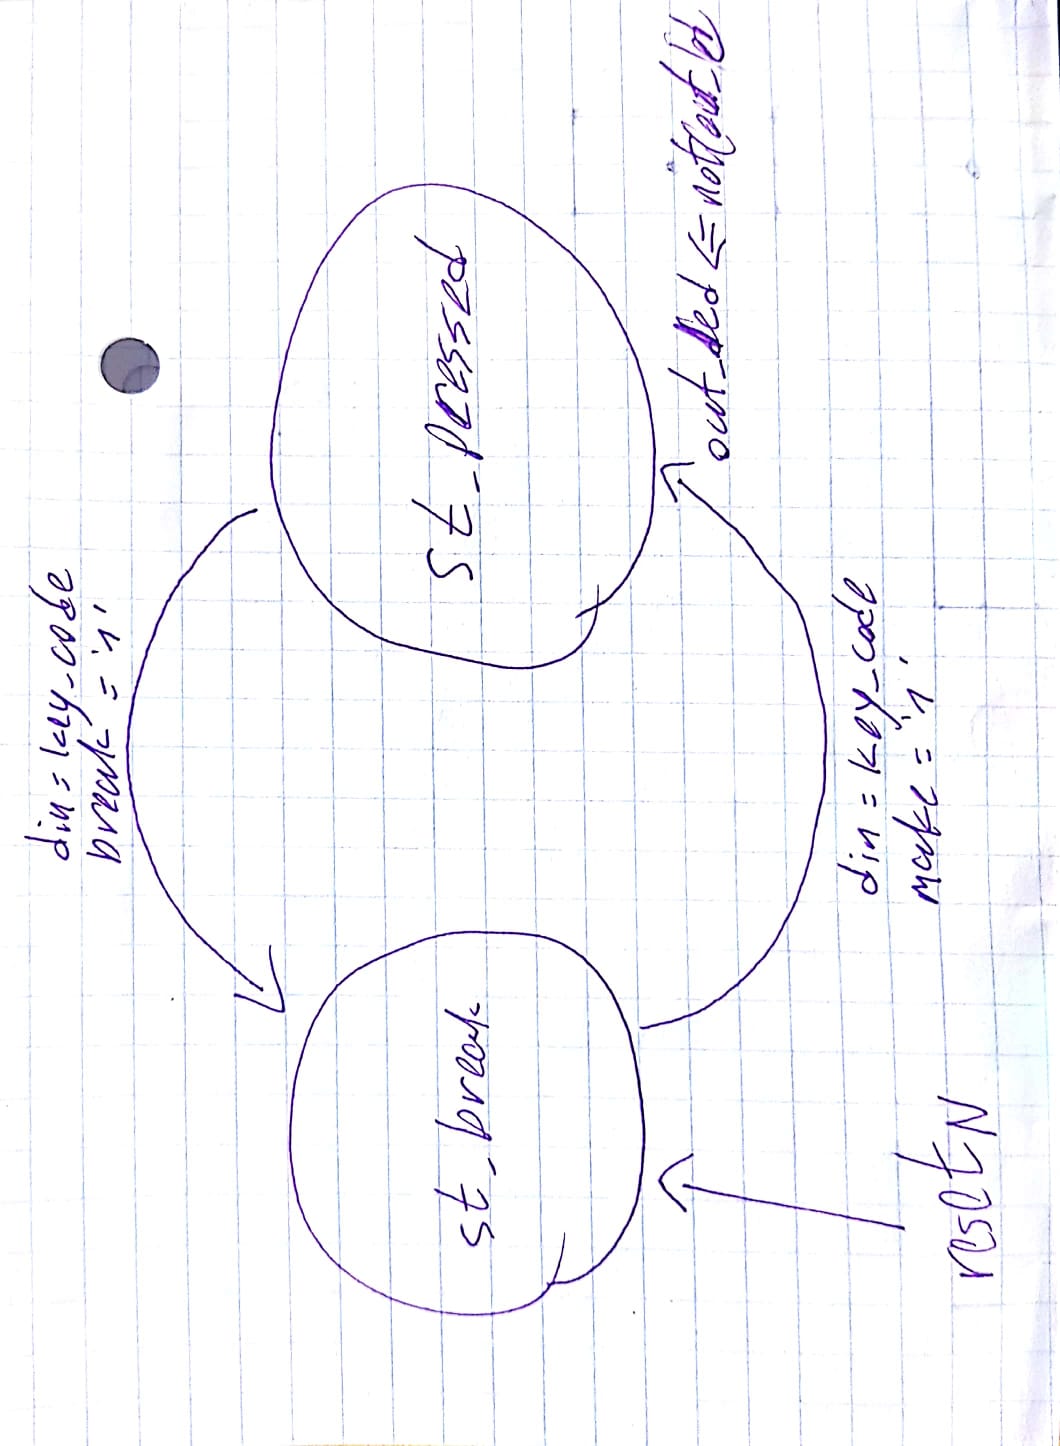 din = key_code
break = '1'
st_break
st_pressed
out_led <= not(out_led
din = key_code
make = '1'
resetN